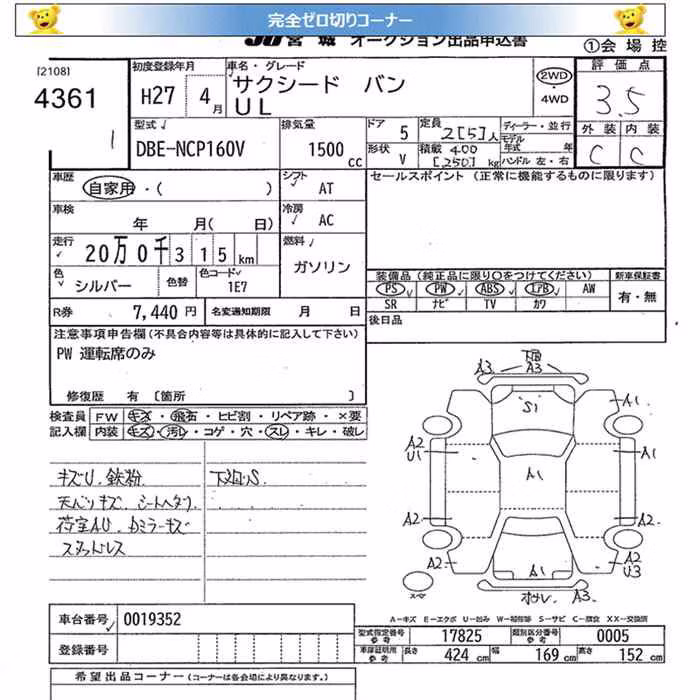 完全ゼロ切りコーナー
JU宮城 オークション出品申込書
①会場控
[2108]
4361
1
初度登録年月
H27 4月
車名・グレード
サクシード バン
UL
2WD
・
4WD
評価点
3.5
外装 内装
C C
型式
DBE-NCP160V
排気量
1500cc
ドア 5
形状 V
定員 2[5]人
積載 400 [250]kg
ディーラー・並行
モデル年式 年
ハンドル 左・右
車歴
自家用・( )
シフト AT
セールスポイント (正常に機能するものに限ります)
車検
年 月(日)
冷房 AC
走行
20万0千315km
燃料
ガソリン
色
シルバー
色替
色コード
1E7
装備品 (純正品に限り○をつけてください)
新車保証書
PS PW ABS エアB AW
SR ナビ TV カワ
有・無
R券 7,440円
名変通知期限 月 日
後日品
注意事項申告欄 (不具合内容等は具体的に記入して下さい)
PW 運転席のみ
修復歴 有 [箇所 ]
検査員記入欄
FW キズ・飛石・ヒビ割・リペア跡・×要
内装 キズ・汚レ・コゲ・穴・スレ・キレ・破レ
キズU、鉄粉
下廻S
天バリキズ、シートヘタリ
荷室AU、ミラーキズ
スタッドレス
下廻
A3 A3
S1
A1
A2
U1
A1
A1
A2
A2
A2
A1
A2
U3
スペア
A3
A-キズ E-エクボ U-凹み W-補修等 S-サビ C-腐食 XX-交換済
車台番号 0019352
型式指定番号参考 17825
類別区分番号 0005
登録番号
車庫証明用参考 長さ 424cm 幅 169cm 高さ 152cm
希望出品コーナー (コーナーは各会場により異なります。)